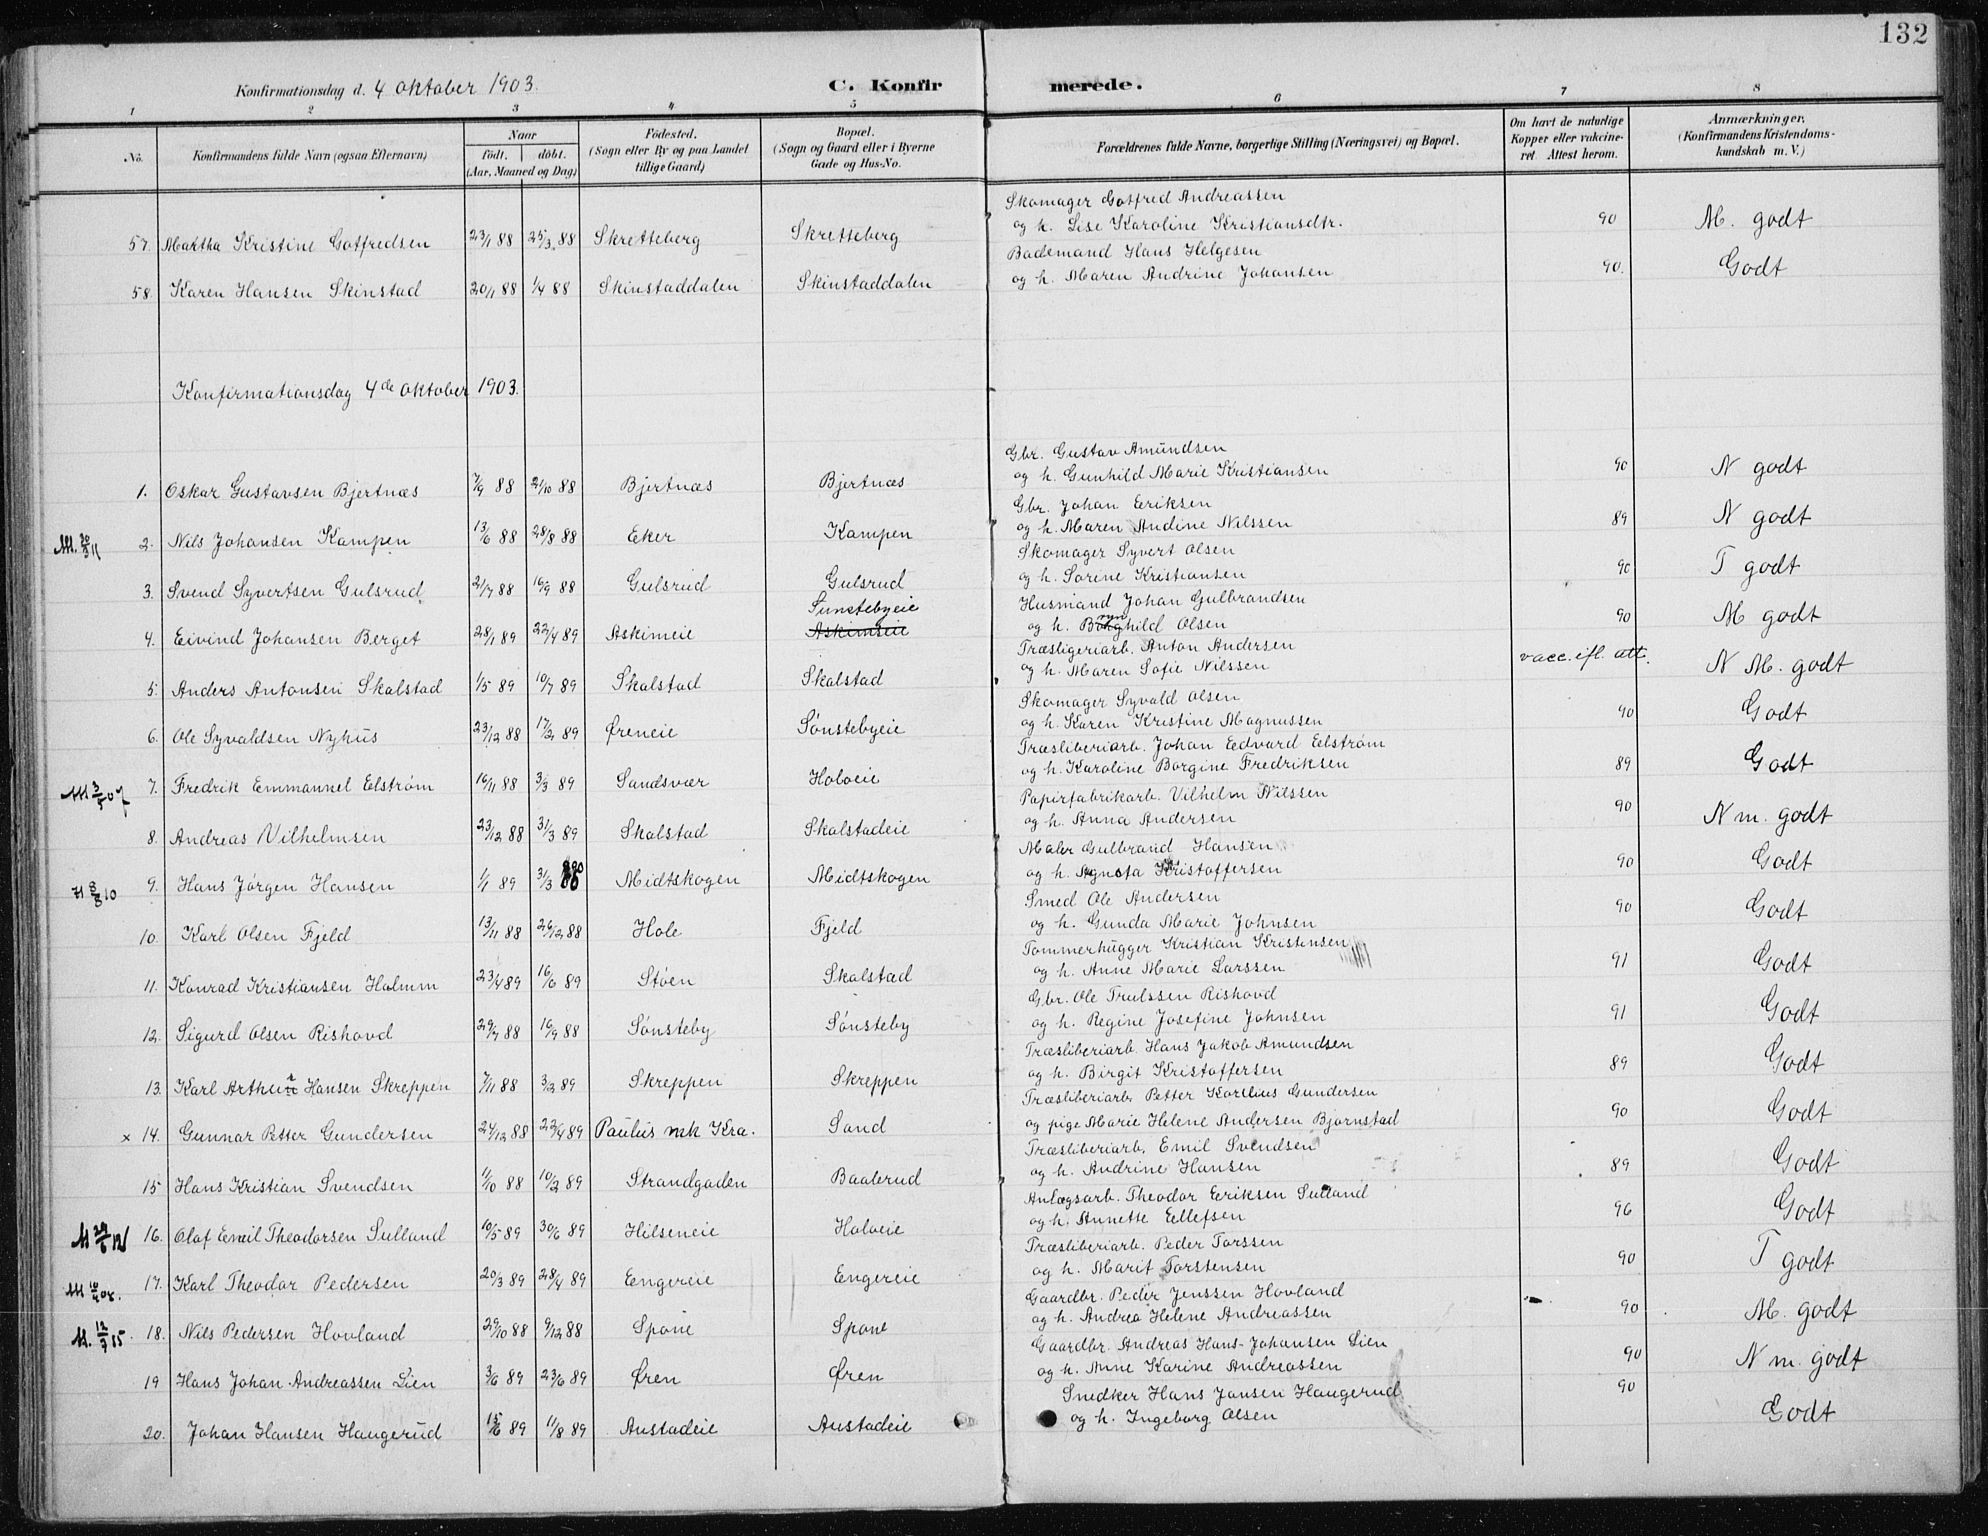 132
Konfirmationsdag d. 4 oktober 1903. C. Konfir merede.
1 2 3 4 5 6 7 8
No. Konfirmandens fulde Navn (ogsaa Efternavn) Naar født. døbt. (Aar, Maaned og Dag) Fødested. (Sogn eller By og paa Landet tillige Gaard) Bopæl. (Sogn og Gaard eller i Byerne Gade og Hus-No. Forældrenes fulde Navne, borgerlige Stilling (Næringsvei) og Bopæl. Om havt de naturlige Kopper eller vakcineret. Attest herom. Anmærkninger. (Konfirmandens Kristendomskundskab m. V.)
Skomager Gotfred Andreassen
57. Martha Kristine Gotfredsen 23/1 88 25/3 88 Skretteberg Skretteberg og h. Lise Karoline Kristiansdtr. 90 M. godt
Bademand Hans Helgesen
58. Karen Hansen Skinstad 20/1 88 1/4 88 Skinstaddalen Skinstaddalen og h. Maren Andrine Johansen 90. Godt
Konfirmationsdag 4de oktober 1903.
Gbr. Gustav Amundsen
1. Oskar Gustavsen Bjertnæs 7/9 88 21/10 88 Bjertnæs Bjertnæs og h. Gunhild Marie Kristiansen 90 N godt
Gbr. Johan Eriksen
2. Nils Johansen Kampen 13/6 88 28/8 88 Eker Kampen og h. Maren Andine Nilssen 89 N godt
Skomager Syvert Olsen
3. Svend Syvertsen Gulsrud 21/7 88 16/9 88 Gulsrud Gulsrud og h. Sorine Kristiansen 90 T godt
Sunstebyeie Husmand Johan Gulbrandsen
4. Eivind Johansen Berget 28/1 89 22/4 89 Askimeie Askimseie og h. Borghild Olsen 90 M godt
Træsligeriarb. Anton Andersen
5. Anders Antonsen Skalstad 1/5 89 10/7 89 Skalstad Skalstad og h. Maren Sofie Nilssen vacc. ifl. att. N M. godt
Skomager Syvald Olsen
6. Ole Syvaldsen Nyhus 23/12 88 17/2 89 Øreneie Sønstebyeie og h. Karen Kristine Magnussen 90 Godt
Træsliberiarb. Johan Edvard Elstrøm
M 3/5 07 7. Fredrik Emmanuel Elstrøm 16/11 88 3/3 89 Sandsvær Holveie og h. Karoline Borgine Fredriksen 89 Godt
Papirfabrikarb. Vilhelm Nilssen
8. Andreas Vilhelmsen 23/12 88 31/3 89 Skalstad Skalstadeie og h. Anna Andersen 90 N m. godt
Maler Gulbrand Hansen
8/8 10 9. Hans Jørgen Hansen 1/1 89 31/3 Midtskogen Midtskogen og h. Kristoffersen 90 Godt
Smed Ole Andersen
10. Karl Olsen Fjeld 13/11 88 26/12 88 Hole Fjeld og h. Gunda Marie Johnsen 90 Godt
Tommerhugger Kristian Kristensen
11. Konrad Kristiansen Holmm 23/4 89 16/6 89 Støen Skalstad og h. Anne Marie Larssen 91 Godt
Gbr. Ole Trulssen Rishovd
12. Sigurd Olsen Rishovd 29/7 88 16/9 88 Sønsteby Sønsteby og h. Regine Josefine Johnsen 91 Godt
Træsliberiarb. Hans Jakob Amundsen
13. Karl Arthur Hansen Skreppen 7/11 88 3/2 89 Skreppen Skreppen og h. Birgit Kristoffersen 89 Godt
Træsliberiarb. Petter Karelius Gundersen
x 14. Gunnar Petter Gundersen 24/12 88 22/4 89 Paulus mk Kra. Sand og pige Marie Helene Andersen Bjornstad 90 Godt
Træsliberiarb. Emil Svendsen
15 Hans Kristian Svendsen 1/10 88 10/2 89 Strandgaden Baalerud og h. Andrine Hansen 89 Godt
Anlægsarb. Theodor Eriksen Sulland
16. Olaf Emil Theodorsen Sulland 10/5 89 30/6 89 Hilseneie Holveie og h. Annette Ellefsen 96 Godt
Træsliberiarb. Peder Torssen
17. Karl Theodor Pedersen 20/3 89 28/4 89 Engereie Engereie og h. Marit Torstensen 90 T godt
Gaardbr. Peder Jenssen Hovland
M. 12/7 15 18. Nils Pedersen Hovland 29/10 88 9/12 88 Spone Spone og h. Andrea Helene Andreassen 90 M. godt
Gaardbr. Andreas Hans-Johansen Lien
19 Hans Johan Andreassen Lien 3/6 89 23/6 89 Øren Øren og h. Anne Karine Andreassen 90 N m. godt
Snedker Hans Jansen Haugerud
20. Johan Hansen Haugerud 15/6 89 11/8 89 Austadeie Austadeie og h. Ingeborg Olsen 90 Godt